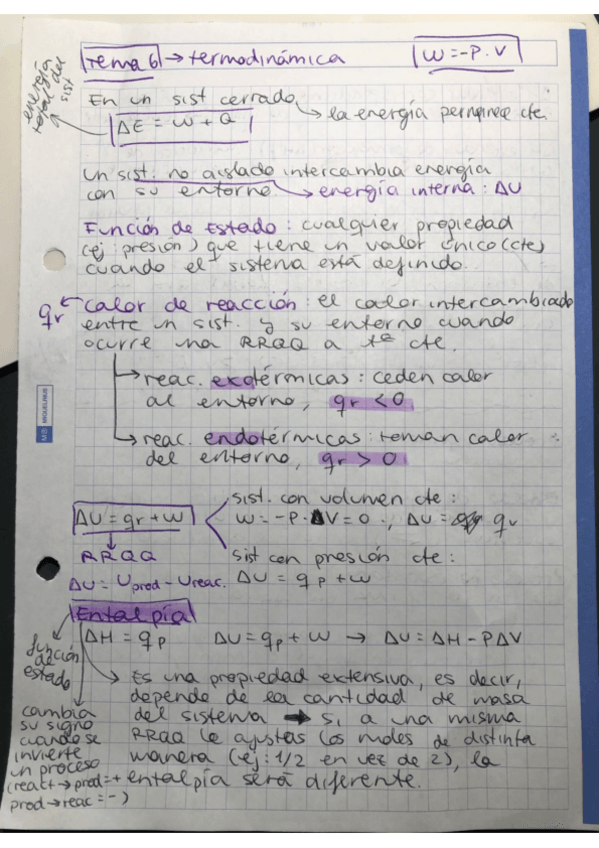 Tema 6 → termodinámica
W = -P·V
energía
total del
sist
En un sist cerrado → la energía permanece cte.
ΔE = W + Q
Un sist. no aislado intercambia energía
con su entorno. → energía interna : ΔU
Función de Estado : cualquier propiedad
(ej : presión) que tiene un valor único (cte)
cuando el sistema está definido.
qr ← calor de reacción : el calor intercambiado
entre un sist. y su entorno cuando
ocurre una RRQQ a tª cte.
→ reac. exotérmicas : ceden calor
al entorno, qr < 0
→ reac. endotérmicas : toman calor
del entorno, qr > 0
MS MIQUELRIUS
sist. con volumen cte :
ΔU = qr + W
W = -P·ΔV = 0 ., ΔU = qv
RRQQ
sist con presión cte :
ΔU = Uprod - Ureac.
ΔU = qp + W
Entalpía
ΔH = qp ΔU = qp + W → ΔU = ΔH - PΔV
función
de
estado
→ Es una propiedad extensiva, es decir,
depende de la cantidad de masa
del sistema → si a una misma
RRQQ le ajustas los moles de distinta
manera (ej: 1/2 en vez de 2), la
entalpía será diferente.
cambia
su signo
cuando se
invierte
un proceso
(react → prod = +
prod → reac = -)